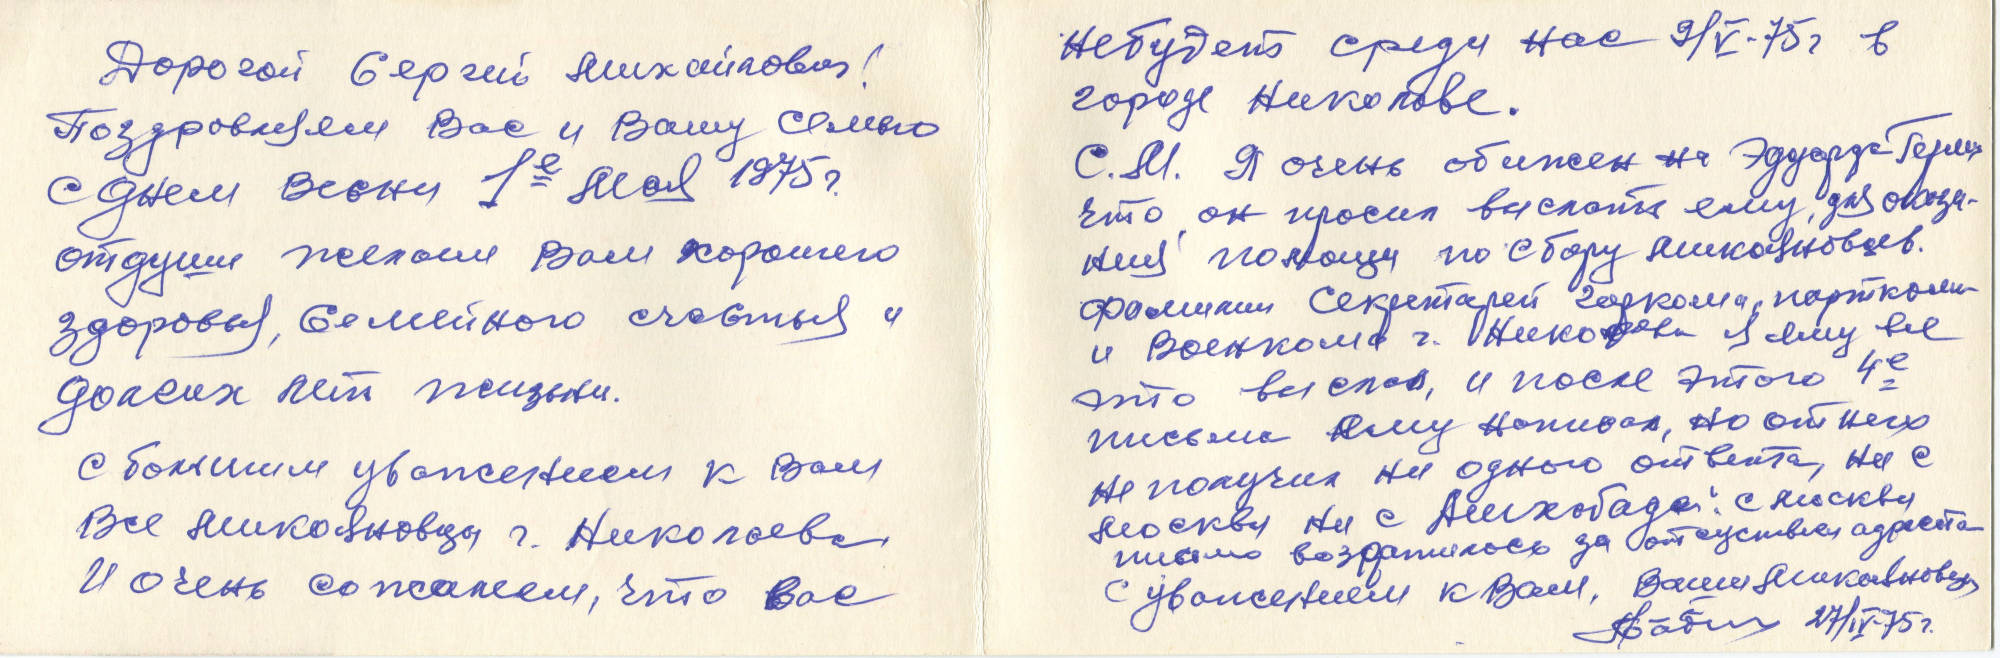 Дорогой Сергей Михайлович!
Поздровляем Вас и Вашу Семью
С днем Весни 1е Мая 1975г.
отдуши желаем Вам хорошего
здоровья, Семейного счастья и
долгих лет жизни.
С большим уважением к Вам
Все Микояновцы г. Николаева
И очень сожалеем, что Вас
Небудет среди нас 9/V-75г в
городе Николаве.
С.М. Я очень обижен на Эдуарда
что он просил выслать ему, для оказа-
ния помощи по сбору микояновцев.
фамилии Секретарей горкома, парткома
и Военкома г. Николаева я ему все
это выслал, и после этого 4е
письма ему написал, но от него
не получил ни одного ответа, ни с
Москвы ни с Ашхобада. С Москвы
письмо возратилось за отсуствием адресата
С уважением к Вам, Ваши Микояновцы
27/IV-75г.